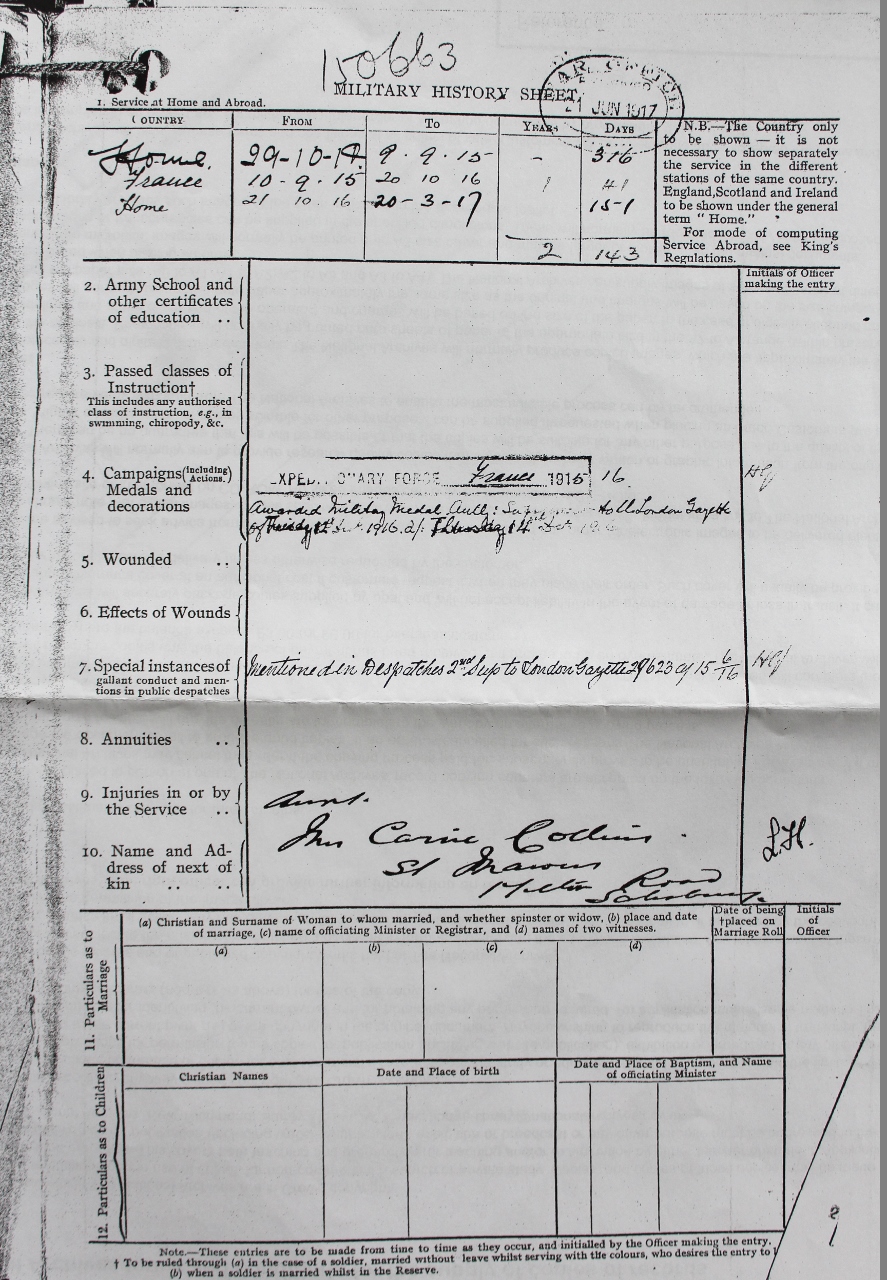 150663
MILITARY HISTORY SHEET
21 JUN 1917
1. Service at Home and Abroad.
COUNTRY FROM TO YEARS DAYS
Home. 29-10-14 9.9.15 - 316
France 10-9.15 20 10 16 1 41
Home 21 10.16 20-3-17 151
2 143
N.B.—The Country only
to be shown — it is not
necessary to show separately
the service in the different
stations of the same country.
England, Scotland and Ireland
to be shown under the general
term "Home."
For mode of computing
Service Abroad, see King's
Regulations.
Initials of Officer
making the entry
2. Army School and
other certificates
of education ..
3. Passed classes of
Instruction†
This includes any authorised
class of instruction, e.g., in
swimming, chiropody, &c.
4. Campaigns (including Actions.)
Medals and
decorations
EXPEDITIONARY FORCE France 1915 16.
Awarded Military Medal Auth: to London Gazette
1916
5. Wounded ..
6. Effects of Wounds
7. Special instances of
gallant conduct and men-
tions in public despatches
Mentioned in Despatches 2nd Sup to London Gazette 29623 of 15 6/16
8. Annuities ..
9. Injuries in or by
the Service ..
10. Name and Ad-
dress of next of
kin .. ..
Aunt.
Mrs Carrie Collins
St
Road
Salisbury.
L.H.
11. Particulars as to
Marriage
(a) Christian and Surname of Woman to whom married, and whether spinster or widow, (b) place and date
of marriage, (c) name of officiating Minister or Registrar, and (d) names of two witnesses.
Date of being
†placed on
Marriage Roll
Initials
of
Officer
(a) (b) (c) (d)
12. Particulars as to Children
Christian Names
Date and Place of birth
Date and Place of Baptism, and Name
of officiating Minister
Note.—These entries are to be made from time to time as they occur, and initialled by the Officer making the entry.
† To be ruled through (a) in the case of a soldier, married without leave whilst serving with the colours, who desires the entry to
(b) when a soldier is married whilst in the Reserve.